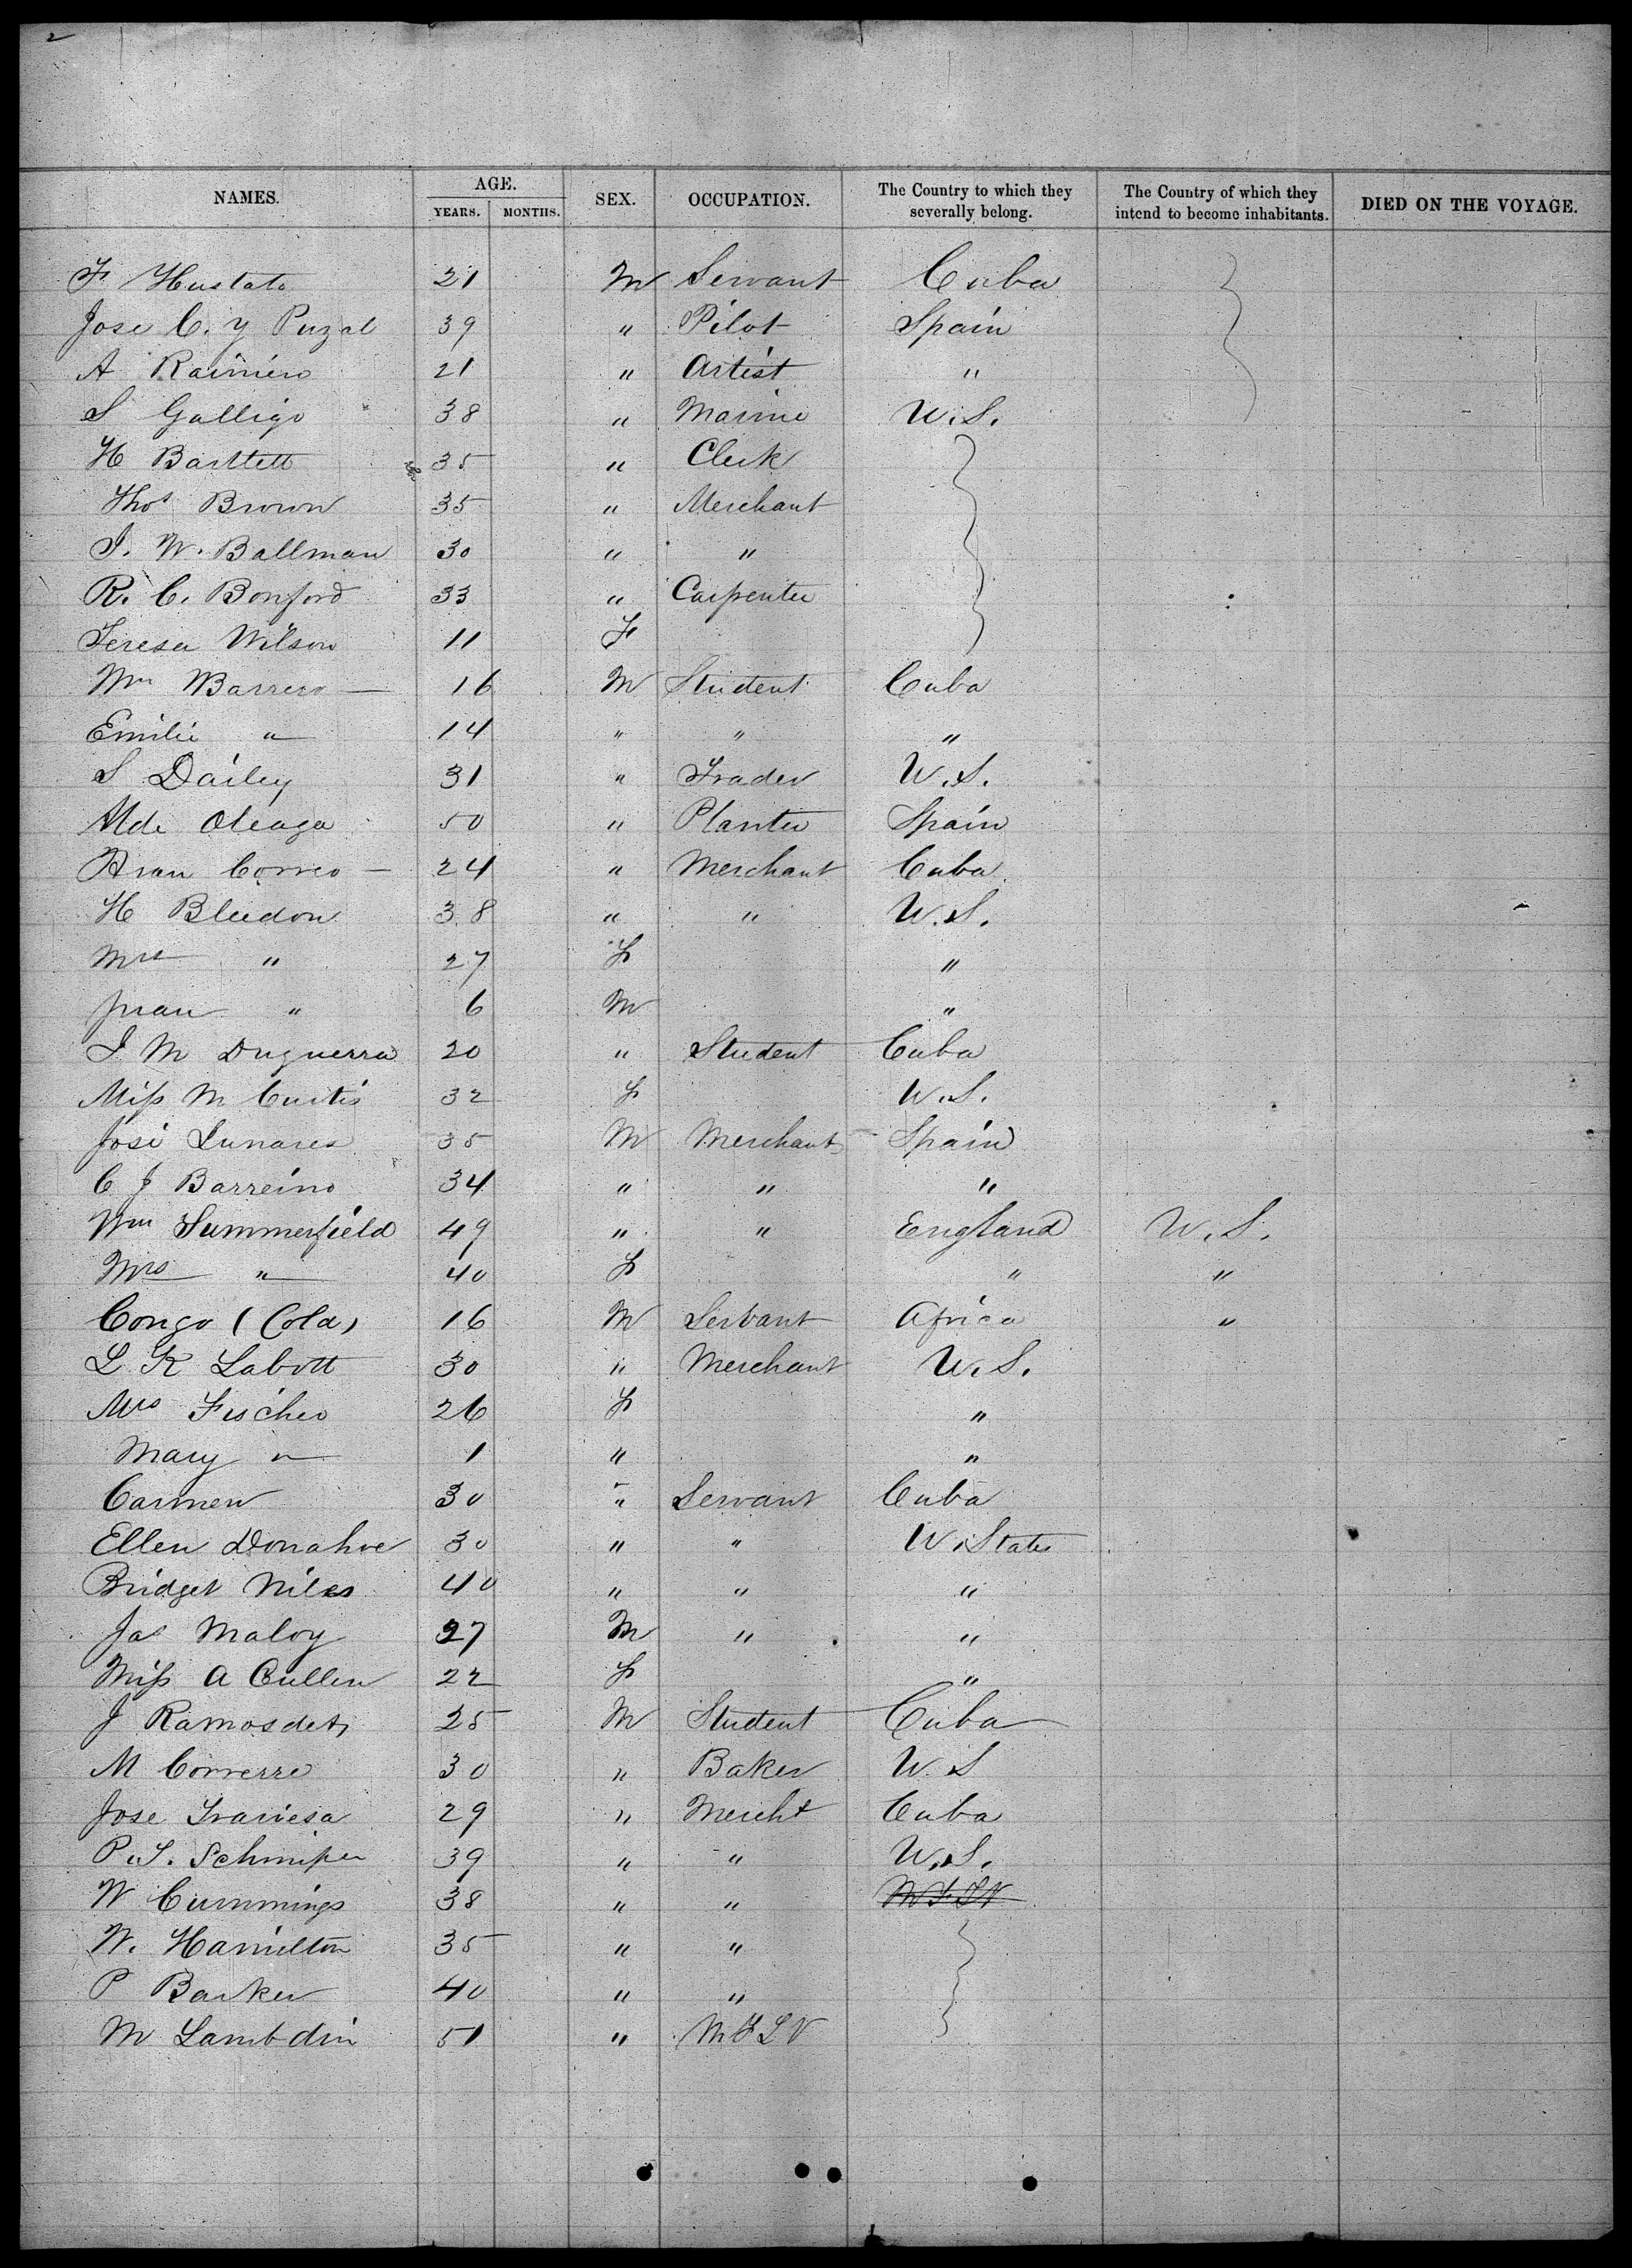 2
NAMES. AGE. YEARS. MONTHS. SEX. OCCUPATION. The Country to which they severally belong. The Country of which they intend to become inhabitants. DIED ON THE VOYAGE.
F Hustato 21 M Servant Cuba
Jose C. y Puzal 39 " Pilot Spain
A Rainiero 21 " Artist "
S Galligo 38 " Marine U.S.
H Bartlett 35 " Clerk
Thos Brown 35 " Merchant
J. W. Ballman 30 " "
R. C. Bonford 33 " Carpenter
Teresa Wilson 11 F
Wm Barrero 16 M Student Cuba
Emilie " 14 " " "
S Dailey 31 " Trader U.S.
Mde Oleaga 50 " Planter Spain
Correo 24 " Merchant Cuba
H Bleedon 38 " " U.S.
Mrs " 27 F "
Juan " 6 M "
J M Duguerra 20 " Student Cuba
Miss M Curtis 32 F U.S.
José Lunares 35 M Merchant Spain
C J Barreino 34 " " "
Wm Summerfield 49 " " England U.S.
Mrs " 40 F " "
Congo (Cold) 16 M Servant Africa "
L K Labott 30 " Merchant U.S.
Mrs Fischer 26 F "
Mary " 1 " "
Carmen 30 " Servant Cuba
Ellen Donahoe 30 " " U. States
Bridget Niles 40 " " "
Jas Maloy 27 M " "
Miss A Cullen 22 F "
J Ramosdet 25 M Student Cuba
M Correrre 30 " Baker U.S
Jose Traviesa 29 " Mercht Cuba
P. S. 39 " " U.S.
W Cummings 38 " "
W. Hamilton 35 " "
P Barker 40 " "
M Lambdin 51 "